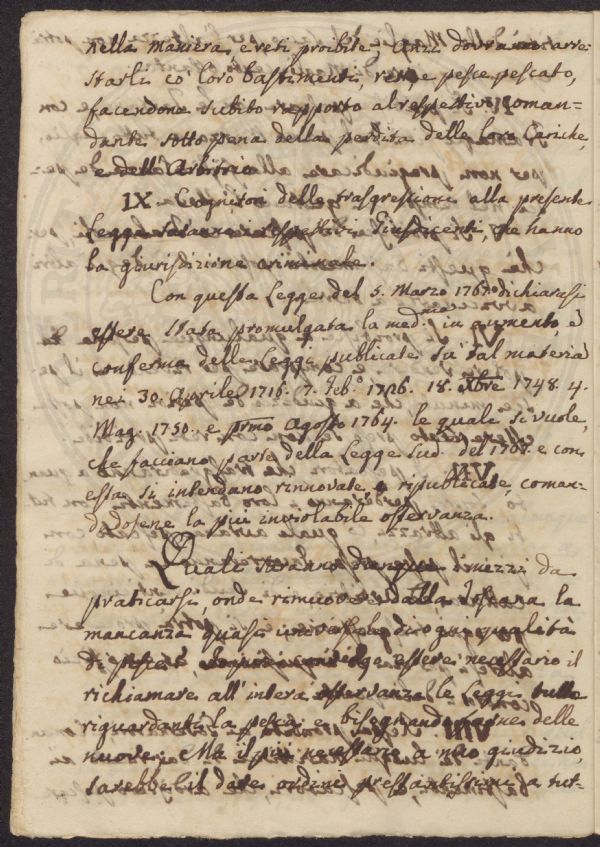 nella maniera, e reti proibite, anzi dovranno arre-
starli co' loro bastimenti, reti, e pesce pescato,
facendone subito rapporto al respettivo Coman-
dante sotto pena della perdita delle loro Cariche,
e dell'Arbitrio.
IX. Cognitori delle trasgressioni alla presente
Legge saranno i respettivi Giusdicenti, che hanno
la giurisdizione criminale.
Con questa Legge del 5. Marzo 1767. dichiarasi
essere stata promulgata la med.ma in aumento, e
conferma delle Leggi publicate su tal materia
ne' 30. Aprile 1716. 7. Feb.o 1726. 18. Xbre 1748. 4.
Mag. 1750. e prmo Agosto 1764. le quali si vuole,
che facciano parte della Legge sud. del 1767. e con
essa si intendano rinnovate, e ripublicate, coman-
dandosene la più inviolabile osservanza.
Quali saranno dunque i mezzi da
praticarsi, onde rimuovere dalla Toscana la
mancanza quasi universale di ogni qualità
di pesce? essere necessario il
richiamare all'intera osservanza le Leggi tutte
riguardanti la pesca, e bisognando farne delle
nuove. Ma il più necessario, a mio giudizio,
sarebbe il dare ordini pressantissimi a tut-